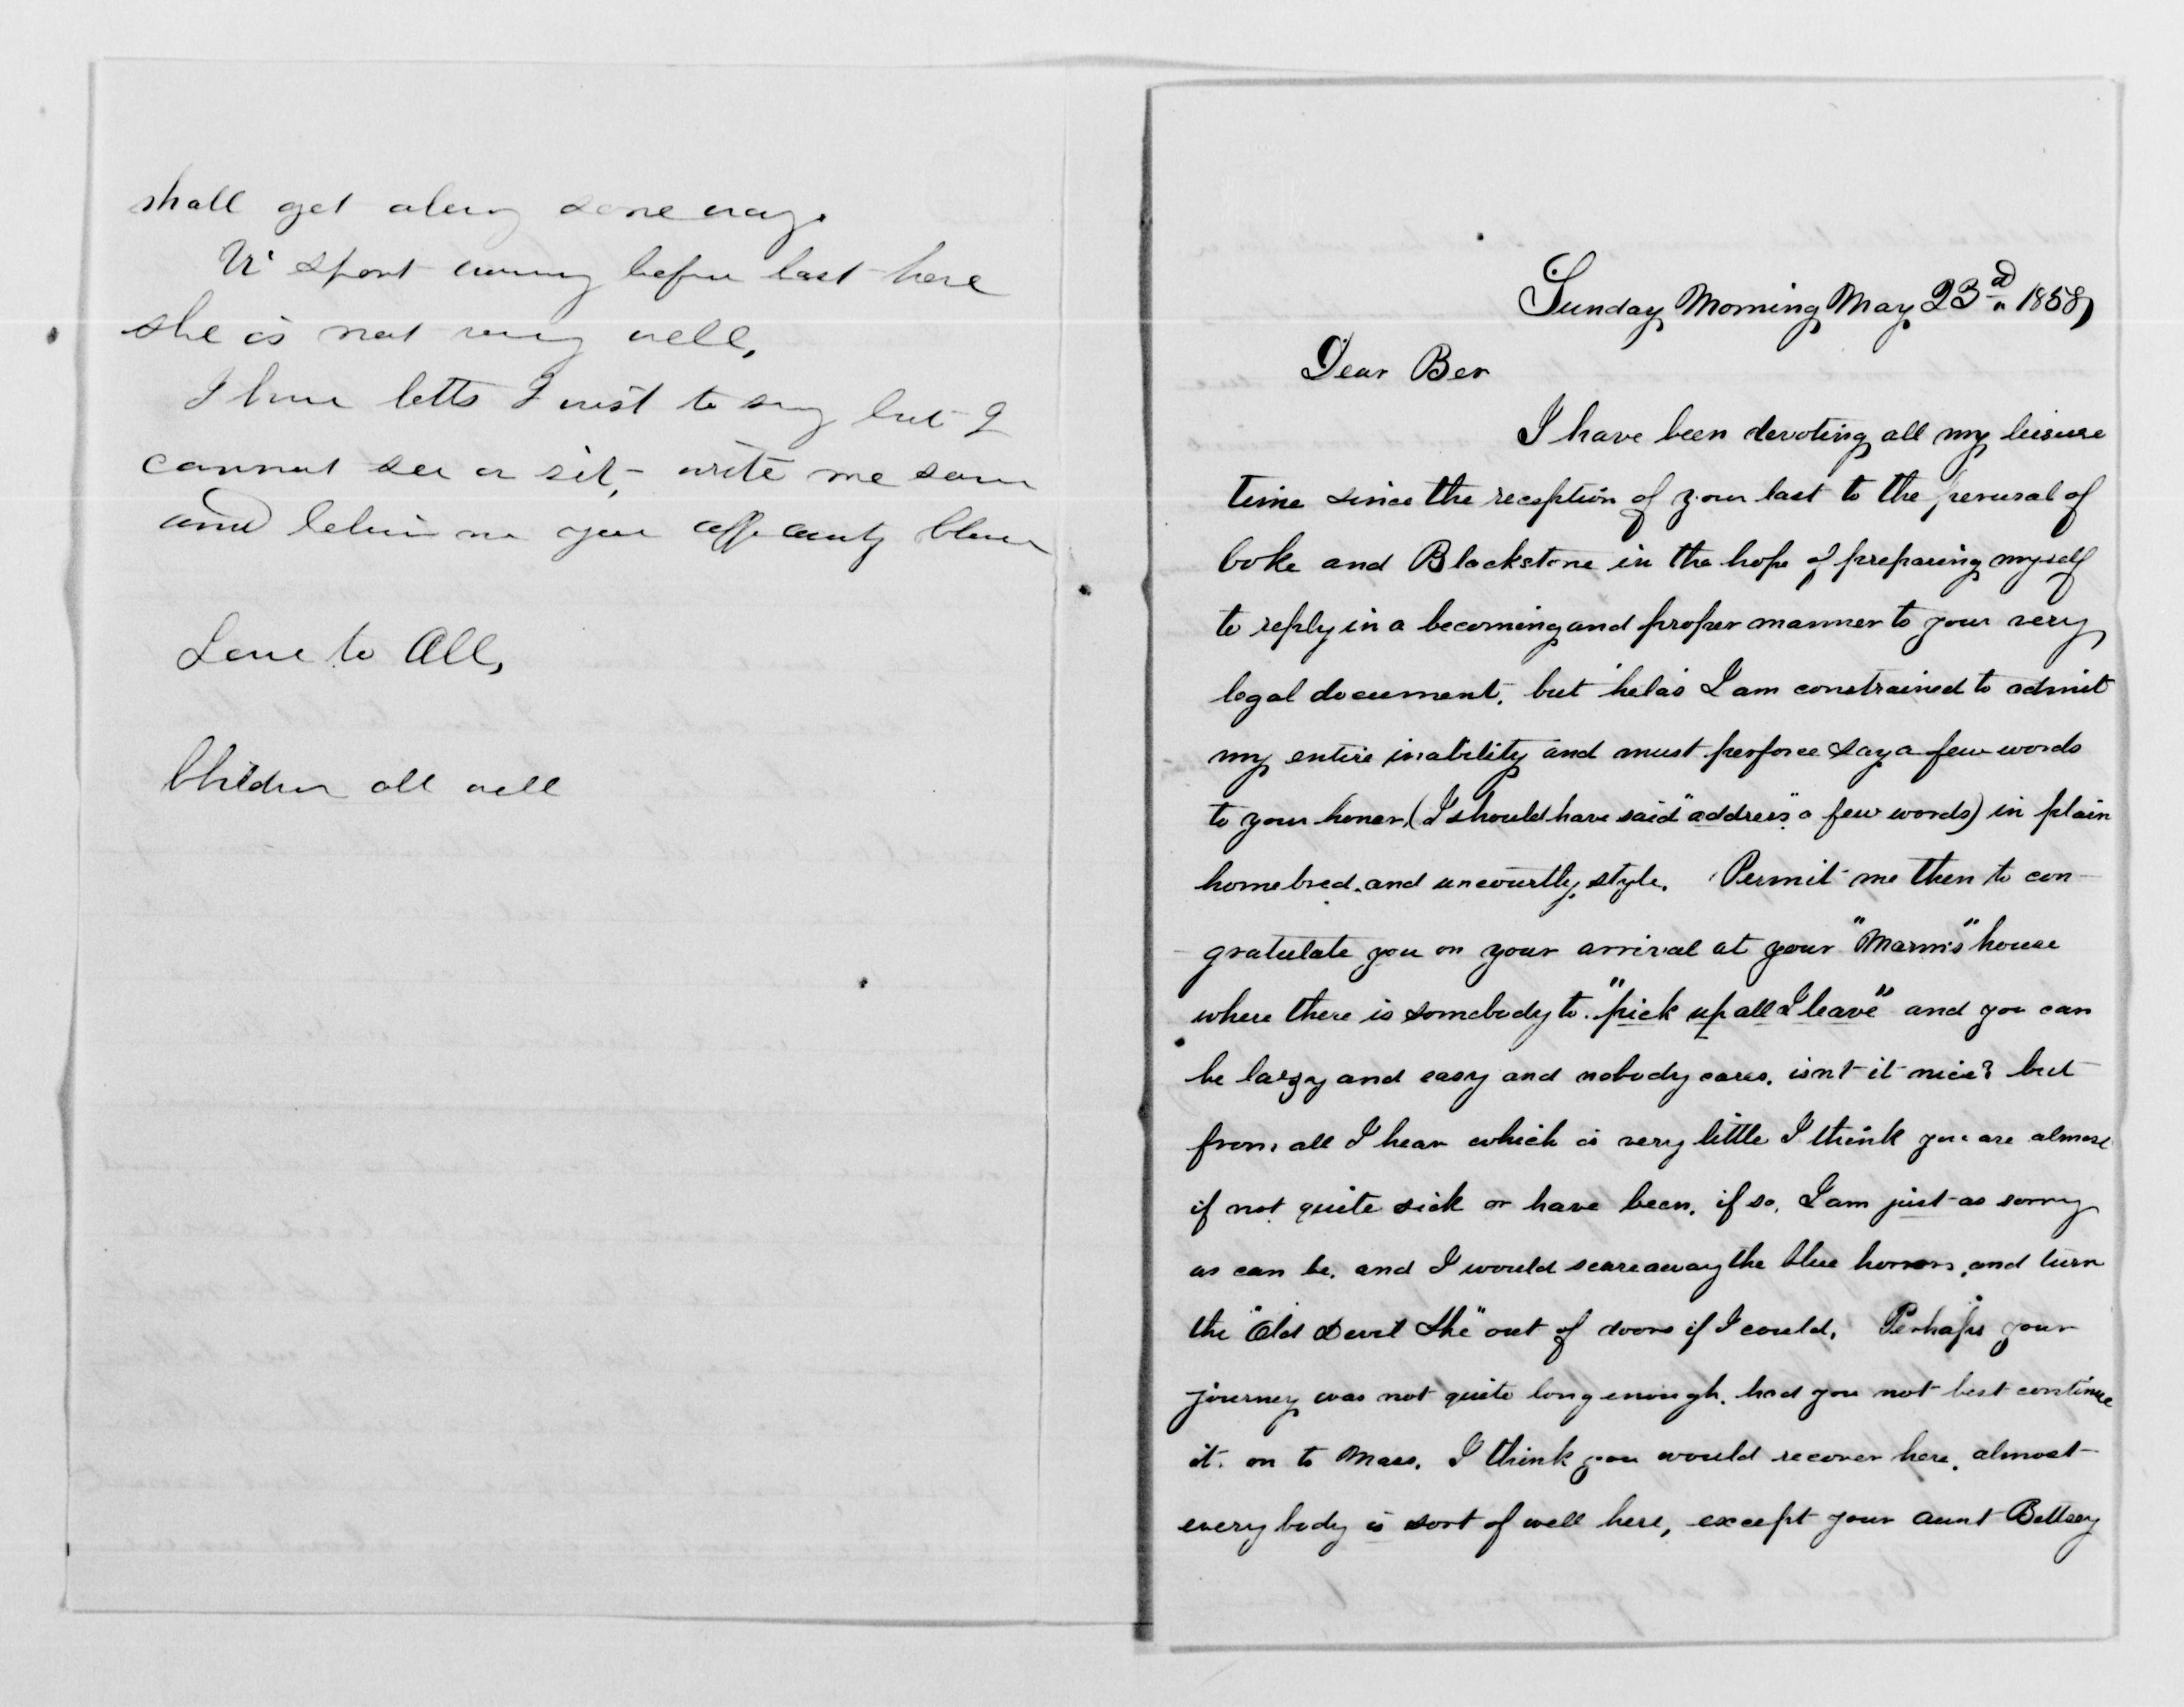 shall get along some way.
Vi spent evening before last here
she is not very well,
I have lotts I wist to say but I
cannot see or sit, write me soon
and believe me your aff
Love to All,
Children all well
Sunday Morning May 23d 1858,
Dear Ber
I have been devoting all my leisure
time since the reception of your last to the perusal of
Coke and Blackstone in the hope of preparing myself
to reply in a becoming and proper manner to your very
legal document. but helas I am constrained to admit
my entire inability and must perforce say a few words
to your honor, (I should have said "address" a few words) in plain
homebred. and uncourtly, style. Permit me then to con-
gratulate you on your arrival at your "Marm's" house
where there is somebody to "pick up all I leave" and you can
be lazy and easy and nobody cares. isnt it nice? but
from all I hear which is very little I think you are almost
if not quite sick or have been. if so, I am just as sorry
as can be. and I would scare away the blue horrors, and turn
the "Old Devil She" out of doors if I could. Perhaps your
journey was not quite long enough. had you not best continue
it. on to Mass. I think you would recover here. almost
every body is sort of well here, except your aunt Bettsey